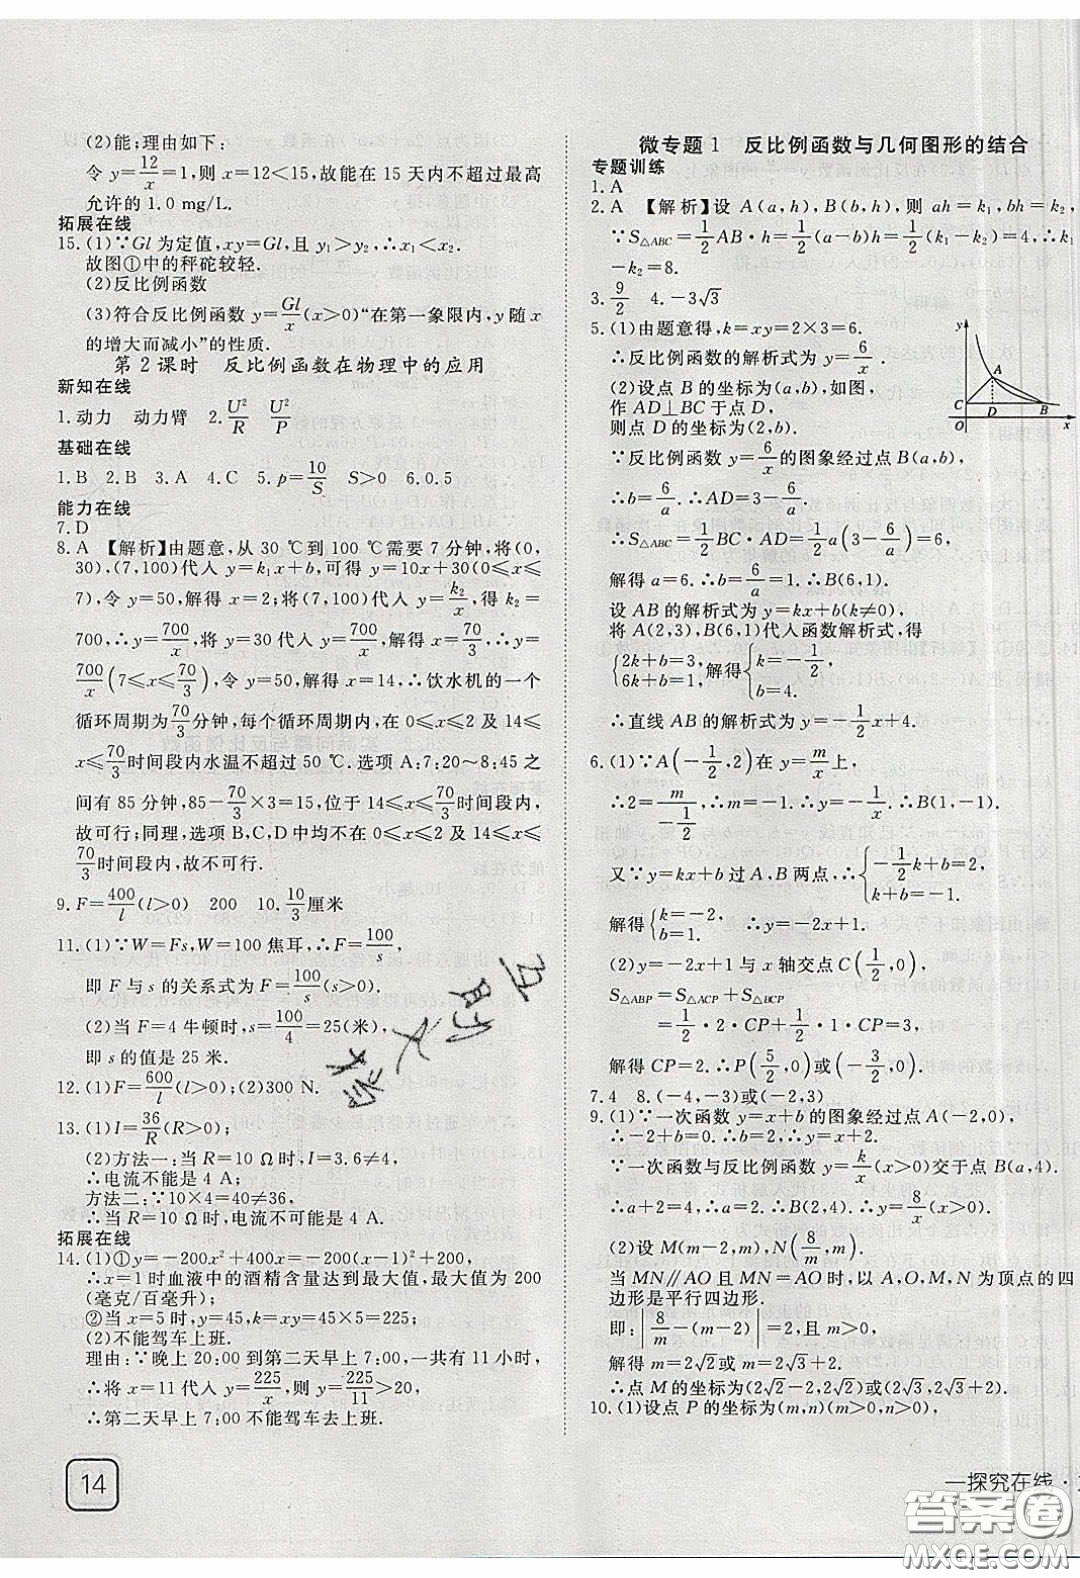 (2)能;理由如下:
令 y=12/x=1,则 x=12<15,故能在 15 天内不超过最高
允许的 1.0 mg/L.
拓展在线
15.(1)∵Gl 为定值,xy=Gl 且 y₁>y₂,∴x₁<x₂.
故图①中的秤砣较轻.
(2)反比例函数
(3)符合反比例函数 y=Gl/x(x>0)“在第一象限内,y 随 x
的增大而减小”的性质.
第 2 课时 反比例函数在物理中的应用
新知在线
1.动力 动力臂 2.U²/R U²/P
基础在线
1.B 2.B 3.A 4.C 5.p=10/S S>0 6.0.5
能力在线
7.D
8.A 【解析】由题意,从 30 ℃到 100 ℃需要 7 分钟,将(0,
30),(7,100)代入 y=k₁x+b,可得 y=10x+30(0≤x≤
7),令 y=50,解得 x=2;将(7,100)代入 y=k₂/x,得 k₂=
700,∴y=700/x,将 y=30 代入 y=700/x,解得 x=70/3;∴y=
700/x(7≤x≤70/3),令 y=50,解得 x=14,∴饮水机的一个
循环周期为70/3分钟,每个循环周期内,在 0≤x≤2 及 14≤
x≤70/3时间段内水温不超过 50 ℃.选项 A;7:20~8:45 之
间有 85 分钟,85-70/3×3=15,位于 14≤x≤70/3时间段内,
故可行;同理,选项 B,C,D 中均不在 0≤x≤2 及 14≤x≤
70/3时间段内,故不可行.
9.F=400/l(l>0) 200 10.10/3厘米
11.(1)∵W=Fs,W=100 焦耳,∴F=100/s,
即 F 与 s 的关系式为 F=100/s(s>0).
(2)当 F=4 牛顿时,s=100/4=25(米),
即 s 的值是 25 米.
12.(1)F=600/l(l>0);(2)300 N.
13.(1)I=36/R(R>0).
(2)方法一:当 R=10 Ω时,I=3.6≠4,
∴电流不可能是 4 A;
方法二:∵10×4=40≠36,
∴当 R=10 Ω时,电流不可能是 4 A.
拓展在线
14.(1)①y=-200x²+400x=-200(x-1)²+200,
∴x=1 时血液中的酒精含量达到最大值,最大值为 200
(毫克/百毫升)
②当 x=5 时,y=45,k=xy=45×5=225;
(2)不能驾车上班.
理由:∵晚上 20:00 到第二天早上 7:00,一共有 11 小时,
∴将 x=11 代入 y=225/x,则 y=225/11>20,
∴第二天早上 7:00 不能驾车去上班.
14
微专题 1 反比例函数与几何图形的结合
专题训练
1.A
2.A 【解析】设 A(a,h),B(b,h),则 ah=k₁,bh=k₂.
∵S△ABC=1/2AB·h=1/2(a-b)h=1/2(k₁-k₂)=4,∴k₁
-k₂=8.
3.9/2 4.-3√3
5.(1)由题意得,k=xy=2×3=6.
∴反比例函数的解析式为 y=6/x.
(2)设点 B 的坐标为(a,b),如图,
作 AD⊥BC 于点 D,
则点 D 的坐标为(2,b).
y
A
C
D
B
O
x
∵反比例函数 y=6/x的图象经过点 B(a,b),
∴b=6/a.∴AD=3-6/a.
∴S△ABC=1/2BC·AD=1/2a(3-6/a)=6,
解得 a=6.∴b=6/a=1.∴B(6,1).
设 AB 的解析式为 y=kx+b(k≠0),
将 A(2,3),B(6,1)代入函数解析式,得
{2k+b=3,6k+b=1,解得{k=-1/2,b=4.
∴直线 AB 的解析式为 y=-1/2x+4.
6.(1)∵A(-1/2,2)在 y=m/x上,
∴2=m/(-1/2).∴m=-1.∴y=-1/x.∴B(1,-1).
又∵y=kx+b 过 A,B 两点,∴{-1/2k+b=2,k+b=-1.
解得{k=-2,b=1.∴y=-2x+1.
(2)y=-2x+1 与 x 轴交点 C(1/2,0),
S△ABP=S△ACP+S△BCP
=1/2·2·CP+1/2·1·CP=3,
解得 CP=2.∴P(5/2,0)或(-3/2,0).
7.4 8.(-4,-3)或(-2,3)
9.(1)∵一次函数 y=x+b 的图象经过点 A(-2,0),
∴-2+b=0.∴b=2,∴y=x+2.
∵一次函数与反比例函数 y=k/x(x>0)交于点 B(a,4).
∴a+2=4.∴a=2.∴B(2,4).∴y=8/x(x>0).
(2)设 M(m-2,m),N(8/m,m).
当 MN∥AO 且 MN=AO 时,以 A,O,M,N 为顶点的四
边形是平行四边形.
即:|8/m-(m-2)|=2,且 m>0,
解得 m=2√2或 m=2√3.
∴点 M 的坐标为(2√2-2,2√2)或(2√3-2,2√3).
10.(1)设点 P 的坐标为(m,n)(m>0,n>0),
一探究在线·
答案圈
MXQE.COM